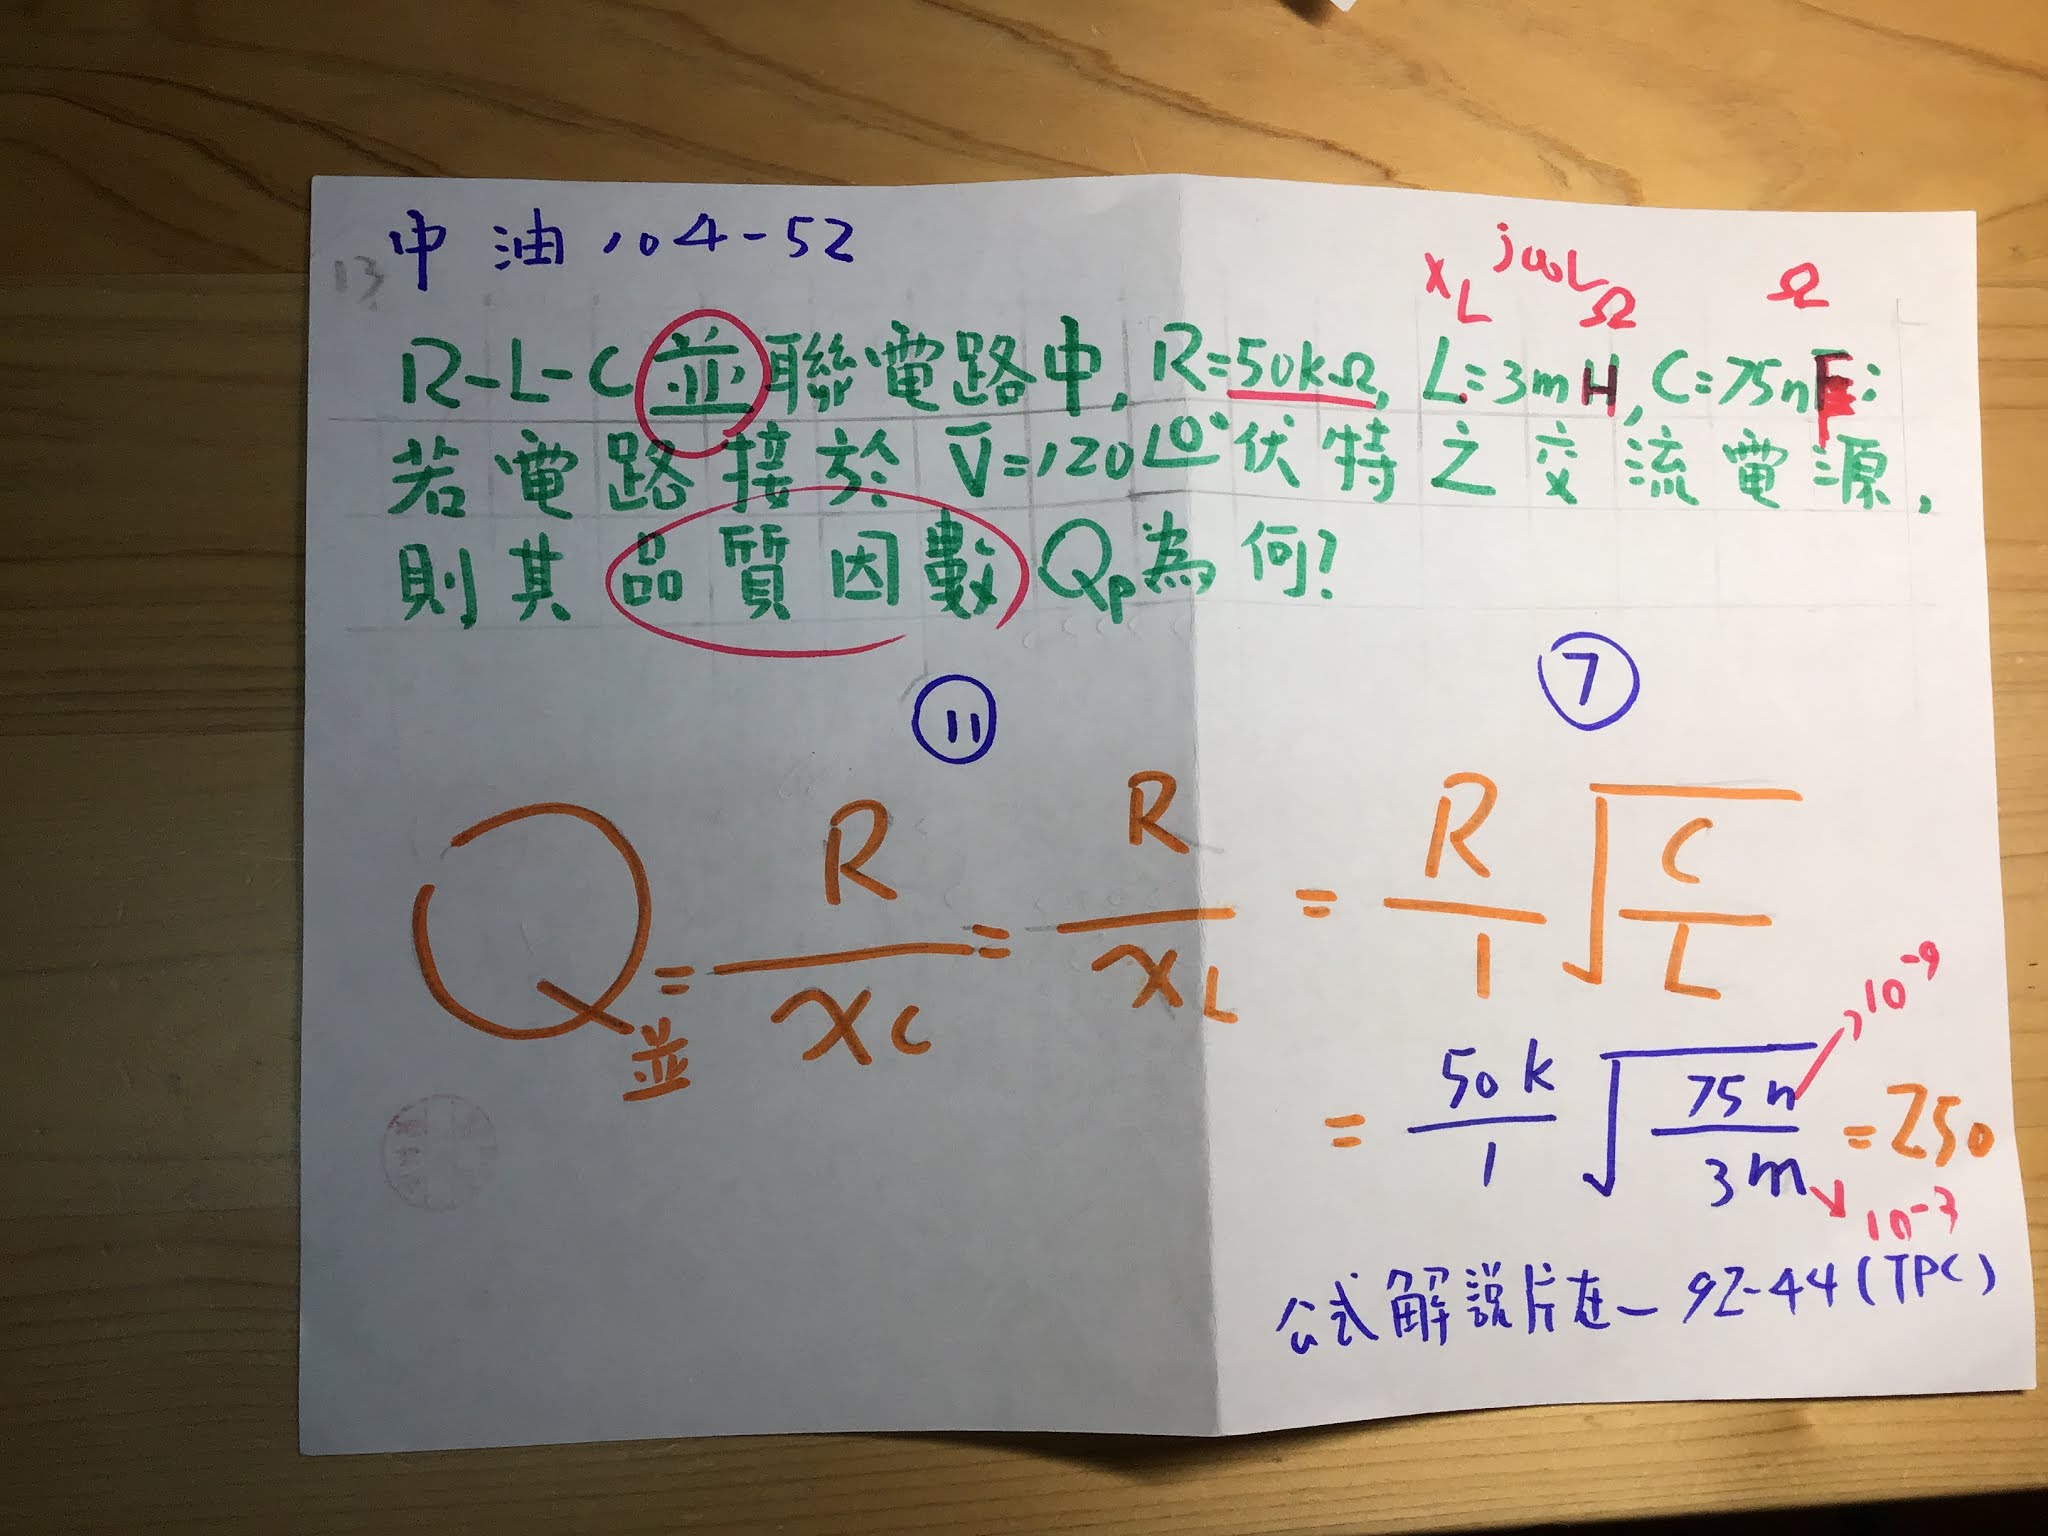 中油104-52
13
XL jωLΩ Ω
R-L-C並聯電路中, R=50kΩ, L=3mH, C=75nF;
若電路接於 V̅=120∠0°伏特之交流電源,
則其品質因數Qp為何?
⑪ ⑦
Q並 = R/XC = R/XL = R/1 √(C/L)
= 50k/1 √(75n/3m) = 250
10⁻⁹
10⁻³
公式解說片在-92-44(TPC)